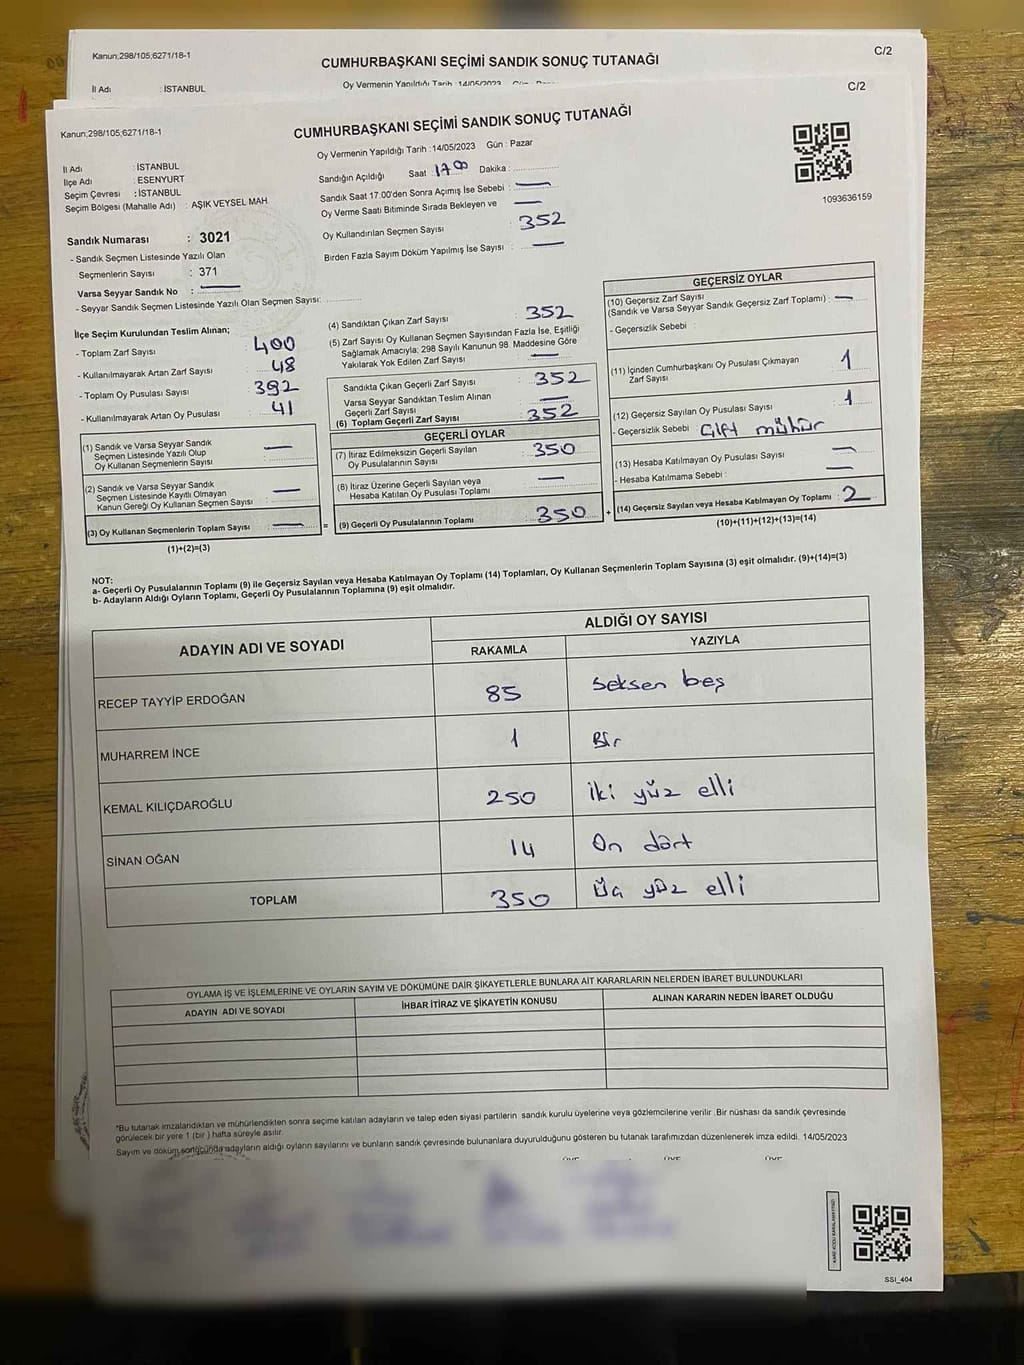 Kanun;298/105;6271/18-1
CUMHURBAŞKANI SEÇİMİ SANDIK SONUÇ TUTANAĞI
C/2
İl Adı : İSTANBUL
Oy Vermenin Yapıldığı Tarih :14/05/2023
C/2
Kanun;298/105;6271/18-1
CUMHURBAŞKANI SEÇİMİ SANDIK SONUÇ TUTANAĞI
Oy Vermenin Yapıldığı Tarih :14/05/2023 Gün : Pazar
İl Adı : İSTANBUL
İlçe Adı : ESENYURT
Seçim Çevresi : İSTANBUL
Seçim Bölgesi (Mahalle Adı) : AŞIK VEYSEL MAH
Sandığın Açıldığı Saat :17 00 Dakika :
Sandık Saat 17.00'den Sonra Açımış İse Sebebi : —
Oy Verme Saati Bitiminde Sırada Bekleyen ve —
Oy Kullandırılan Seçmen Sayısı : 352
Birden Fazla Sayım Döküm Yapılmış İse Sayısı : —
1093636159
Sandık Numarası : 3021
- Sandık Seçmen Listesinde Yazılı Olan
Seçmenlerin Sayısı : 371
Varsa Seyyar Sandık No : —
- Seyyar Sandık Seçmen Listesinde Yazılı Olan Seçmen Sayısı:
İlçe Seçim Kurulundan Teslim Alınan;
- Toplam Zarf Sayısı 400
- Kullanılmayarak Artan Zarf Sayısı 48
- Toplam Oy Pusulası 392
- Kullanılmayarak Artan Oy Pusulası 41
(1) Sandık ve Varsa Seyyar Sandık
Seçmen Listesinde Yazılı Olup
Oy Kullanan Seçmenlerin Sayısı : —
(2) Sandık ve Varsa Seyyar Sandık
Seçmen Listesinde Kayıtlı Olmayan
Kanun Gereği Oy Kullanan Seçmen Sayısı : —
(3) Oy Kullanan Seçmenlerin Toplam Sayısı : — =
(1)+(2)=(3)
(4) Sandıktan Çıkan Zarf Sayısı : 352
(5) Zarf Sayısı Oy Kullanan Seçmen Sayısından Fazla İse, Eşitliği
Sağlamak Amacıyla; 298 Sayılı Kanunun 98. Maddesine Göre
Yakılarak Yok Edilen Zarf Sayısı : —
Sandıkta Çıkan Geçerli Zarf Sayısı : 352
Varsa Seyyar Sandıktan Teslim Alınan
Geçerli Zarf Sayısı : —
(6) Toplam Geçerli Zarf Sayısı : 352
GEÇERLİ OYLAR
(7) İtiraz Edilmeksizin Geçerli Sayılan
Oy Pusulalarının Sayısı : 350
(8) İtiraz Üzerine Geçerli Sayılan veya
Hesaba Katılan Oy Pusulası Toplamı : —
(9) Geçerli Oy Pusulalarının Toplamı : 350 +
GEÇERSİZ OYLAR
(10) Geçersiz Zarf Sayısı
(Sandık ve Varsa Seyyar Sandık Geçersiz Zarf Toplamı) : —
- Geçersizlik Sebebi :
(11) İçinden Cumhurbaşkanı Oy Pusulası Çıkmayan
Zarf Sayısı : 1
(12) Geçersiz Sayılan Oy Pusulası Sayısı : 1
- Geçersizlik Sebebi : Çift mühür
(13) Hesaba Katılmayan Oy Pusulası Sayısı : —
- Hesaba Katılmama Sebebi : —
(14) Geçersiz Sayılan veya Hesaba Katılmayan Oy Toplamı : 2
(10)+(11)+(12)+(13)=(14)
NOT:
a- Geçerli Oy Pusulalarının Toplamı (9) ile Geçersiz Sayılan veya Hesaba Katılmayan Oy Toplamı (14) Toplamları, Oy Kullanan Seçmenlerin Toplam Sayısına (3) eşit olmalıdır. (9)+(14)=(3)
b- Adayların Aldığı Oyların Toplamı, Geçerli Oy Pusulalarının Toplamına (9) eşit olmalıdır.
ADAYIN ADI VE SOYADI ALDIĞI OY SAYISI
RAKAMLA YAZIYLA
RECEP TAYYİP ERDOĞAN 85 seksen beş
MUHARREM İNCE 1 Bir
KEMAL KILIÇDAROĞLU 250 iki yüz elli
SİNAN OĞAN 14 On dört
TOPLAM 350 Üç yüz elli
OYLAMA İŞ VE İŞLEMLERİNE VE OYLARIN SAYIM VE DÖKÜMÜNE DAİR ŞİKAYETLERLE BUNLARA AİT KARARLARIN NELERDEN İBARET BULUNDUKLARI
ADAYIN ADI VE SOYADI İHBAR İTİRAZ VE ŞİKAYETİN KONUSU ALINAN KARARIN NEDEN İBARET OLDUĞU
*Bu tutanak imzalandıktan ve mühürlendikten sonra seçime katılan adayların ve talep eden siyasi partilerin sandık kurulu üyelerine veya gözlemcilerine verilir .Bir nüshası da sandık çevresinde
görülecek bir yere 1 (bir ) hafta süreyle asılır.
Sayım ve döküm sonucunda adayların aldığı oyların sayılarını ve bunların sandık çevresinde bulunanlara duyurulduğunu gösteren bu tutanak tarafımızdan düzenlenerek imza edildi. 14/05/2023
ÜYE ÜYE ÜYE
SSI_404